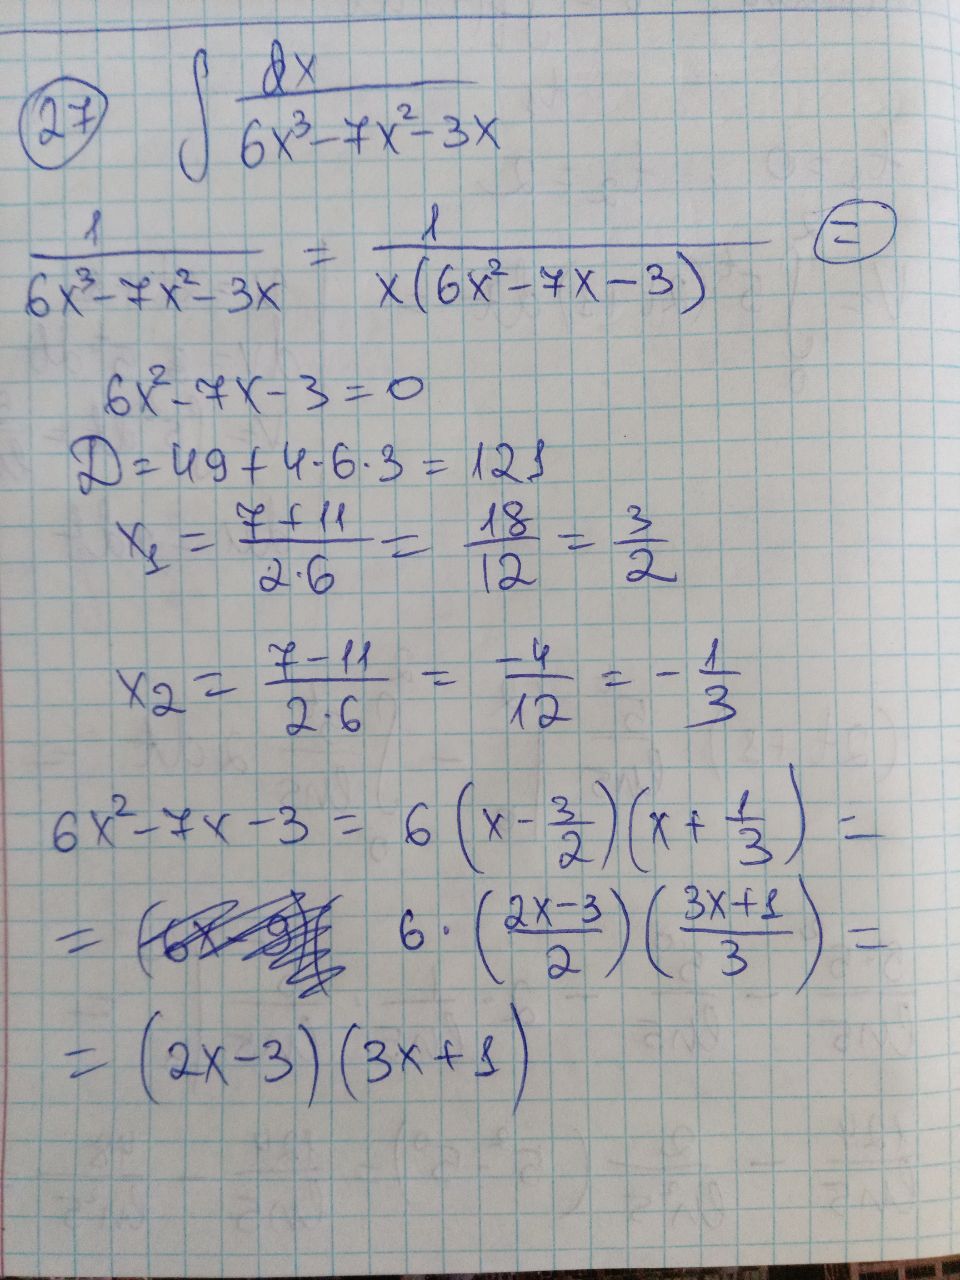 27 ∫ dx / (6x³ - 7x² - 3x)
1 / (6x³ - 7x² - 3x) = 1 / (x(6x² - 7x - 3)) =
6x² - 7x - 3 = 0
Д = 49 + 4·6·3 = 121
x₁ = (7 + 11) / (2·6) = 18/12 = 3/2
x₂ = (7 - 11) / (2·6) = -4/12 = -1/3
6x² - 7x - 3 = 6(x - 3/2)(x + 1/3) =
= 6·((2x - 3)/2)((3x + 1)/3) =
= (2x - 3)(3x + 1)